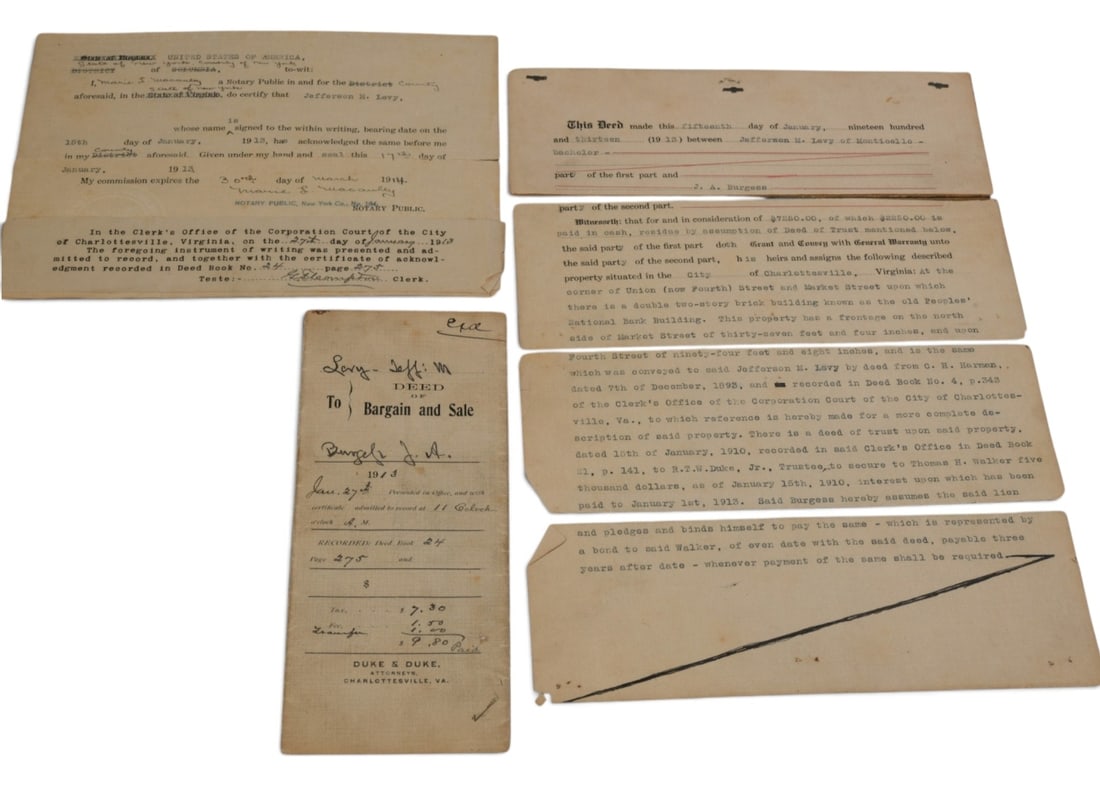 State of Virginia UNITED STATES OF AMERICA,
State of New York County of New York
DISTRICT of COLUMBIA, to-wit:
I, Marie L Macauley a Notary Public in and for the District County
State of New York
aforesaid, in the State of Virginia, do certify that Jefferson M. Levy,
is
whose name signed to the within writing, bearing date on the
15th day of January, 1913, has acknowledged the same before me
County
in my District aforesaid. Given under my hand and seal this 17th day of
January, 1913.
My commission expires the 30th day of March 1914.
Marie L Macauley
NOTARY PUBLIC, New York Co., No.
NOTARY PUBLIC.
In the Clerk's Office of the Corporation Court of the City
of Charlottesville, Virginia, on the 27th day of January 1913
The foregoing instrument of writing was presented and ad-
mitted to record, and together with the certificate of acknowl-
edgment recorded in Deed Book No. 24 page 275
Teste: Clerk.
Levy - Jeff: M
DEED
OF
To Bargain and Sale
Burgess J. A.
1913
Jan. 27th Presented in Office, and with
certificate admitted to record at 11 Oclock
o'clock A. M.
RECORDED: Deed Book 24
Page 275 and
$
Tax, $ 7.30
Fee, 1.50
Transfer 1.00
$ 9.80
Paid
DUKE & DUKE,
ATTORNEYS,
CHARLOTTESVILLE, VA.
This Deed made this fifteenth day of January, nineteen hundred
and thirteen (1913) between Jefferson M. Levy of Monticello -
bachelor -
party of the first part and
J. A. Burgess
party of the second part.
Witnesseth: that for and in consideration of $7250.00, of which $2250.00 is
paid in cash, residue by assumption of Deed of Trust mentioned below,
the said party of the first part doth Grant and Convey with General Warranty unto
the said party of the second part, his heirs and assigns the following described
property situated in the City of Charlottesville, Virginia: At the
corner of Union (now Fourth) Street and Market Street upon which
there is a double two-story brick building known as the old Peoples'
National Bank Building. This property has a frontage on the north
side of Market Street of thirty-seven feet and four inches, and upon
Fourth Street of ninety-four feet and eight inches, and is the same
which was conveyed to said Jefferson M. Levy by deed from C. H. Harmon,
dated 7th of December, 1893, and recorded in Deed Book No. 4, p.343
of the Clerk's Office of the Corporation Court of the City of Charlottes-
ville, Va., to which reference is hereby made for a more complete de-
scription of said property. There is a deed of trust upon said property,
dated 15th of January, 1910, recorded in said Clerk's Office in Deed Book
21, p. 141, to R.T.W.Duke, Jr., Trustee, to secure to Thomas H. Walker five
thousand dollars, as of January 15th, 1910, interest upon which has been
paid to January 1st, 1913. Said Burgess hereby assumes the said lien
and pledges and binds himself to pay the same - which is represented by
a bond to said Walker, of even date with the said deed, payable three
years after date - whenever payment of the same shall be required